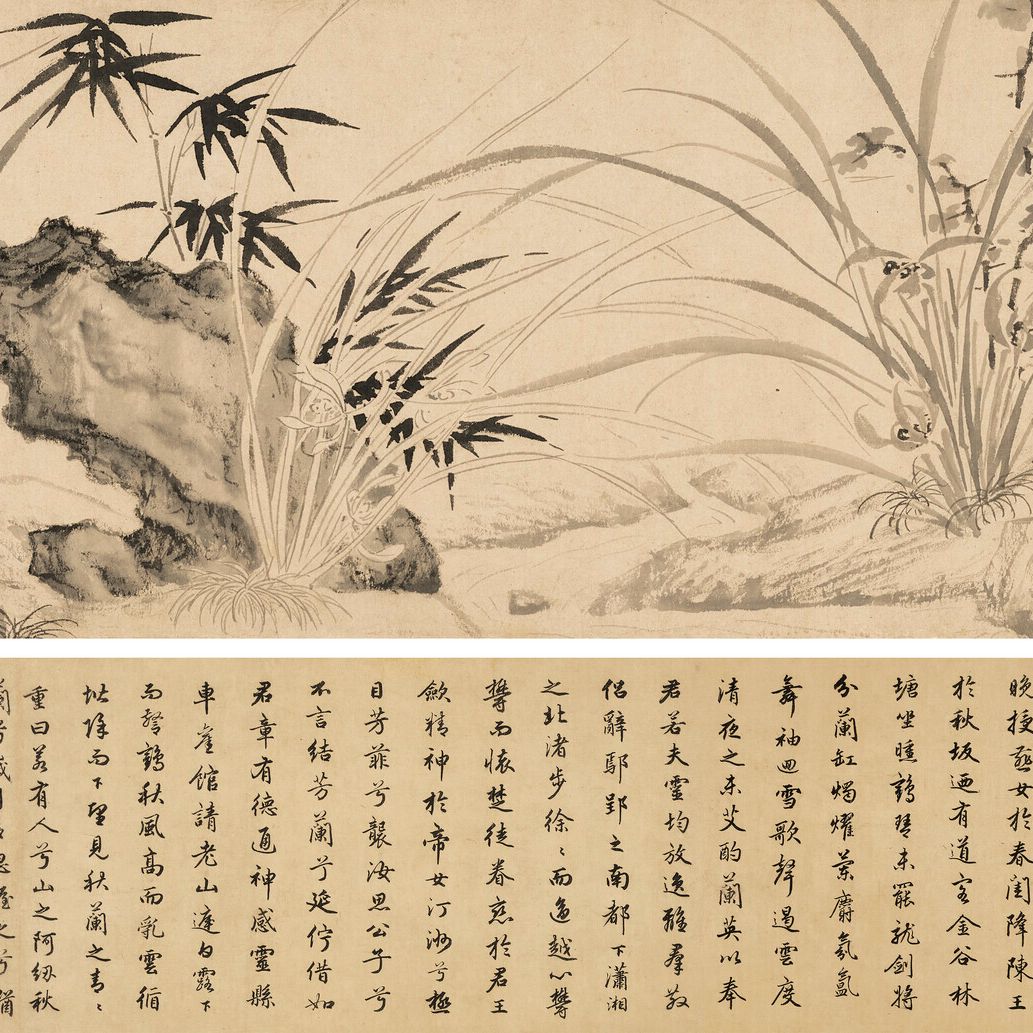 晚授燕女於春閨降陳王
於秋坂迺有道客金谷林
塘坐曛鶴琴未罷龍劍將
分蘭缸燭燿蘭麝氛氳
舞袖迴雪歌聲遏雲度
清夜之未艾酌蘭英以奉
君若夫靈均放逸離羣散
侶辭鄢郢之南都下瀟湘
之北渚步徐〻而適越心鬱
鬱而懷楚徒眷戀於君王
斂精神於帝女汀洲兮極
目芳菲兮襲汝思公子兮
不言結芳蘭兮延佇借如
君章有德通神感靈縣
車舊館請老山庭白露下
而警鶴秋風高而乱雲循
堦除而下望見秋蘭之青〻
重曰若有人兮山之阿紉秋
蘭兮歲月